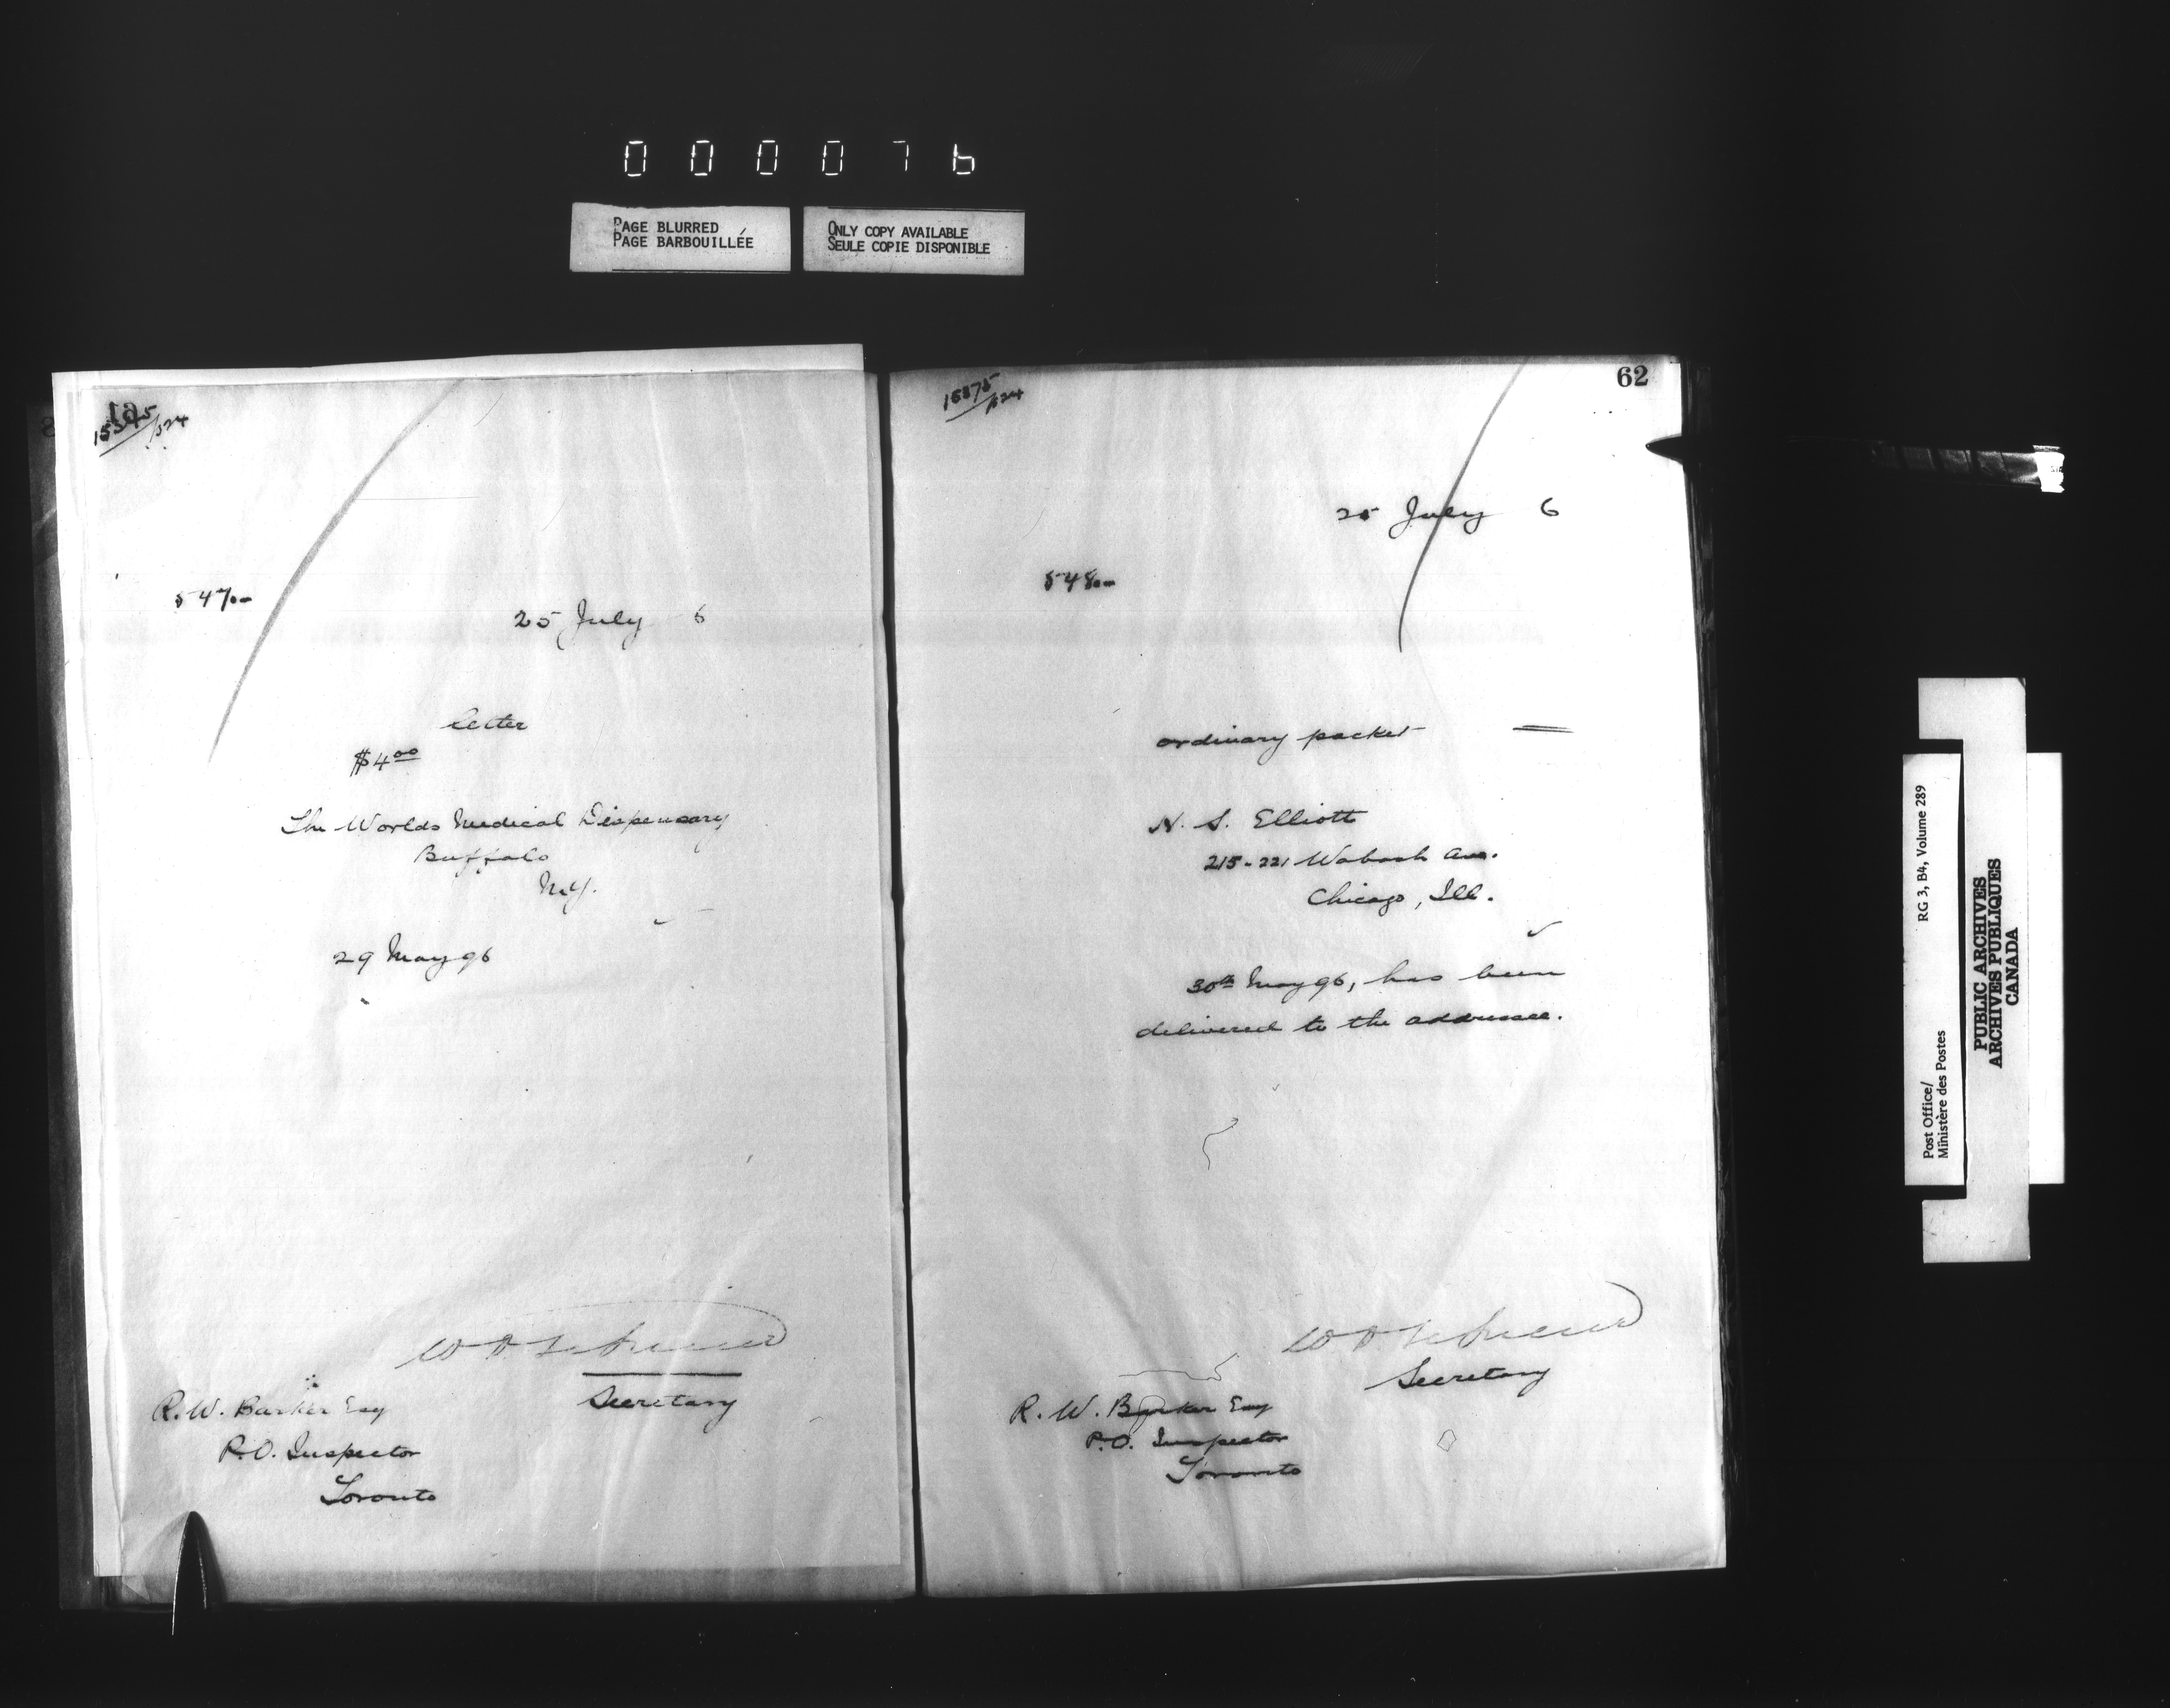 000076
PAGE BLURRED
PAGE BARBOUILLÉE
ONLY COPY AVAILABLE
SEULE COPIE DISPONIBLE
61
/524
547
25 July 6
letter
$4 00
The Worlds Medical Dispensary
Buffalo
N.Y.
29 May 96
Secretary
R. W. Barker Esq
P.O. Inspector
Toronto
62
15375
/524
25 July 6
548
ordinary packet
N. S. Elliott
215-221 Wabash Ave.
Chicago, Ill.
30th May 96, has been
delivered to the addressee.
Secretary
R. W. Barker Esq
P.O. Inspector
Toronto
Post Office/ RG 3, B4, Volume 289
Ministère des Postes
PUBLIC ARCHIVES
ARCHIVES PUBLIQUES
CANADA